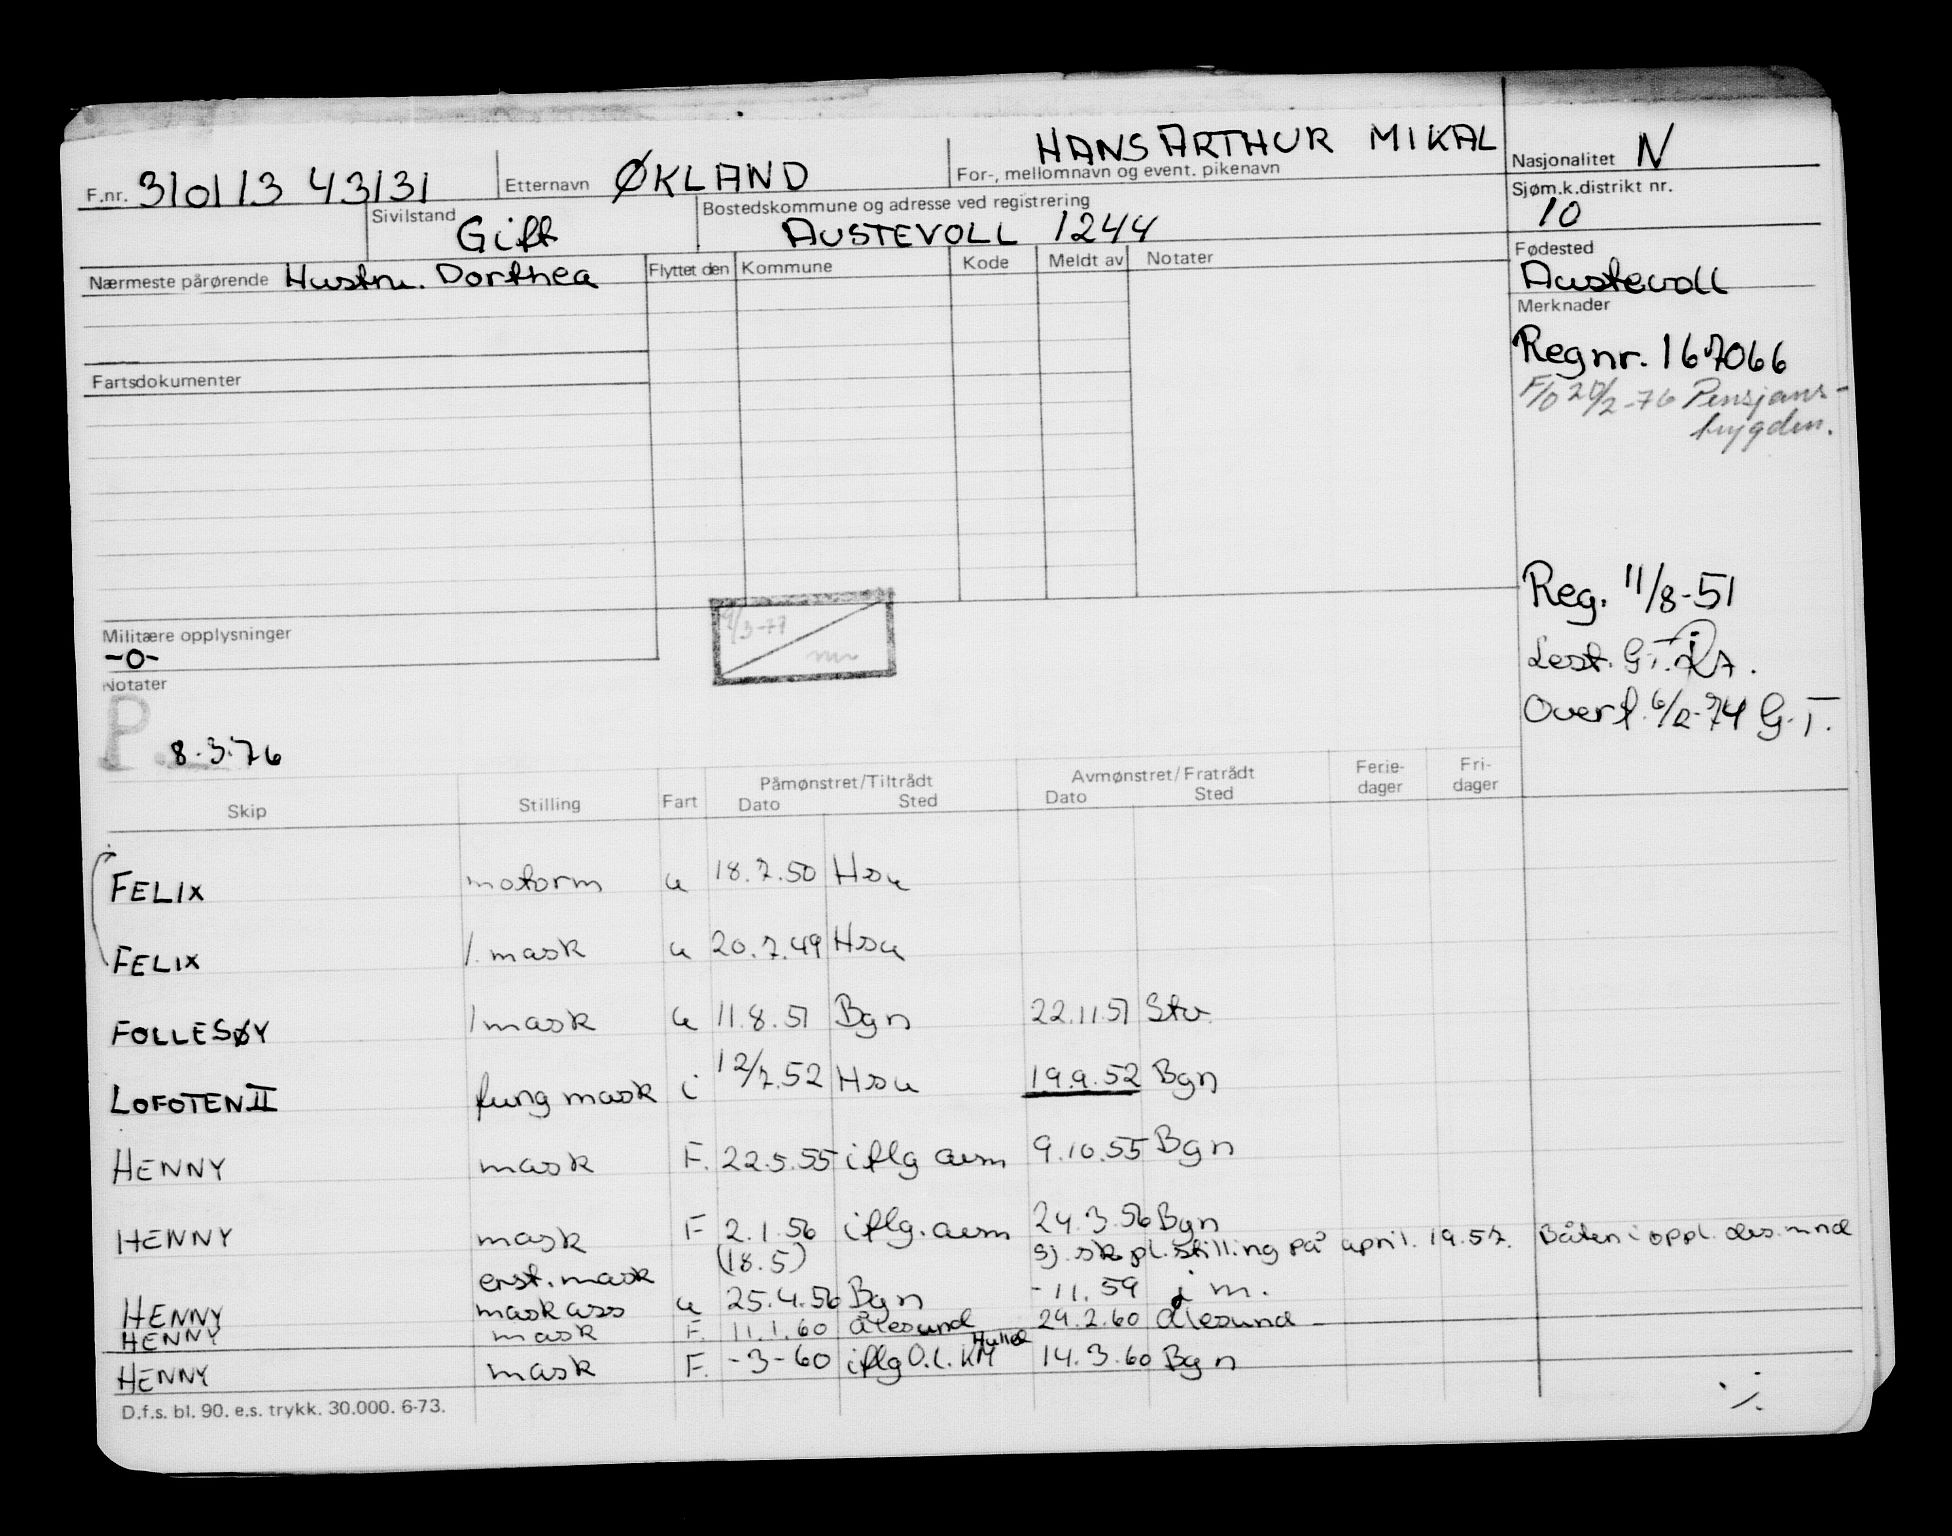 F.nr. 310113 43131 Etternavn ØKLAND For-, mellomnavn og event. pikenavn HANS ARTHUR MIKAL Nasjonalitet N
Sivilstand Gift Bostedskommune og adresse ved registrering AUSTEVOLL 1244 Sjøm.k.distrikt nr. 10
Nærmeste pårørende Hustru. Dorthea Flyttet den Kommune Kode Meldt av Notater Fødested Austevoll
Merknader
Regnr. 167066
F/O 20/2-76 Pensjons-
trygden.
Fartsdokumenter
Reg. 11/8-51
Lest. G.T.
Overf. 6/2-74 G.T.
Militære opplysninger
-0-
9/3-77
Notater
P.
8.3.76
Skip Stilling Fart Påmønstret/Tiltrådt Dato Sted Avmønstret/Fratrådt Dato Sted Ferie-dager Fri-dager
FELIX motorm u 18.7.50 Hsu
FELIX 1. mask u 20.7.49 Hsu
FOLLESØY 1 mask u 11.8.51 Bgn 22.11 51 Stv.
LOFOTEN II fung mask i 12/7.52 Hsu 19.9.52 Bgn
HENNY mask F. 22.5.55 iflg avm 9.10.55 Bgn
HENNY mask F 2.1.56 iflg. avm 24.3.56 Bgn
(18.5) sj. sk pl. stilling på april. 19.57. Båten i oppl. des. mnd
erst. mask
HENNY mask ass u 25.4.56 Bgn -11.59 j m.
HENNY mask F. 11.1.60 Ålesund 24.2.60 Ålesund
HENNY mask F. -3-60 iflg O.l. KM 14.3.60 Bgn
D.f.s. bl. 90. e.s. trykk. 30.000. 6-73.
./.